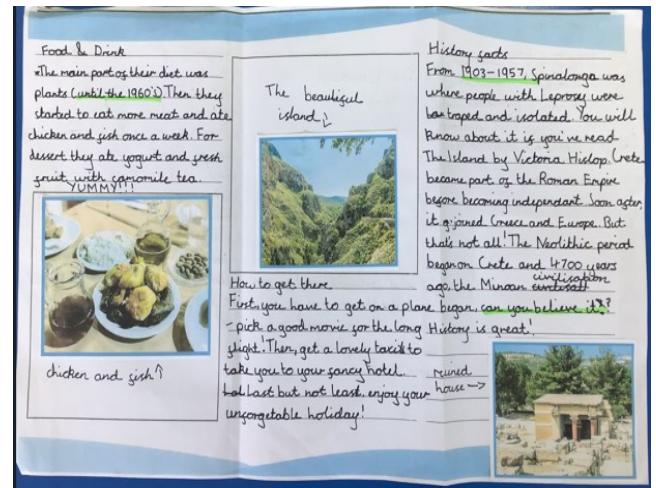 Food & Drink
*The main part of their diet was
plants (until the 1960's). Then they
started to eat more meat and ate
chicken and fish once a week. For
dessert they ate yogurt and fresh
fruit with camomile tea.
YUMMY!!!
chicken and fish
The beautiful
island
How to get there
First, you have to get on a plane
- pick a good movie for the long
flight! Then, get a lovely taxi to
take you to your fancy hotel.
Last but not least, enjoy your
unforgetable holiday!
History facts
From 1903-1957, Spinalonga was
where people with Leprosy were
traped and isolated. You will
know about it if you've read
The Island by Victoria Hislop. Crete
became part of the Roman Empire
before becoming independant. Soon after,
it joined Greece and Europe. But
that's not all! The Neolithic period
began on Crete and 4700 years
civilisation
ago, the Minoan
began, can you believe it?
History is great!
ruined
house ->